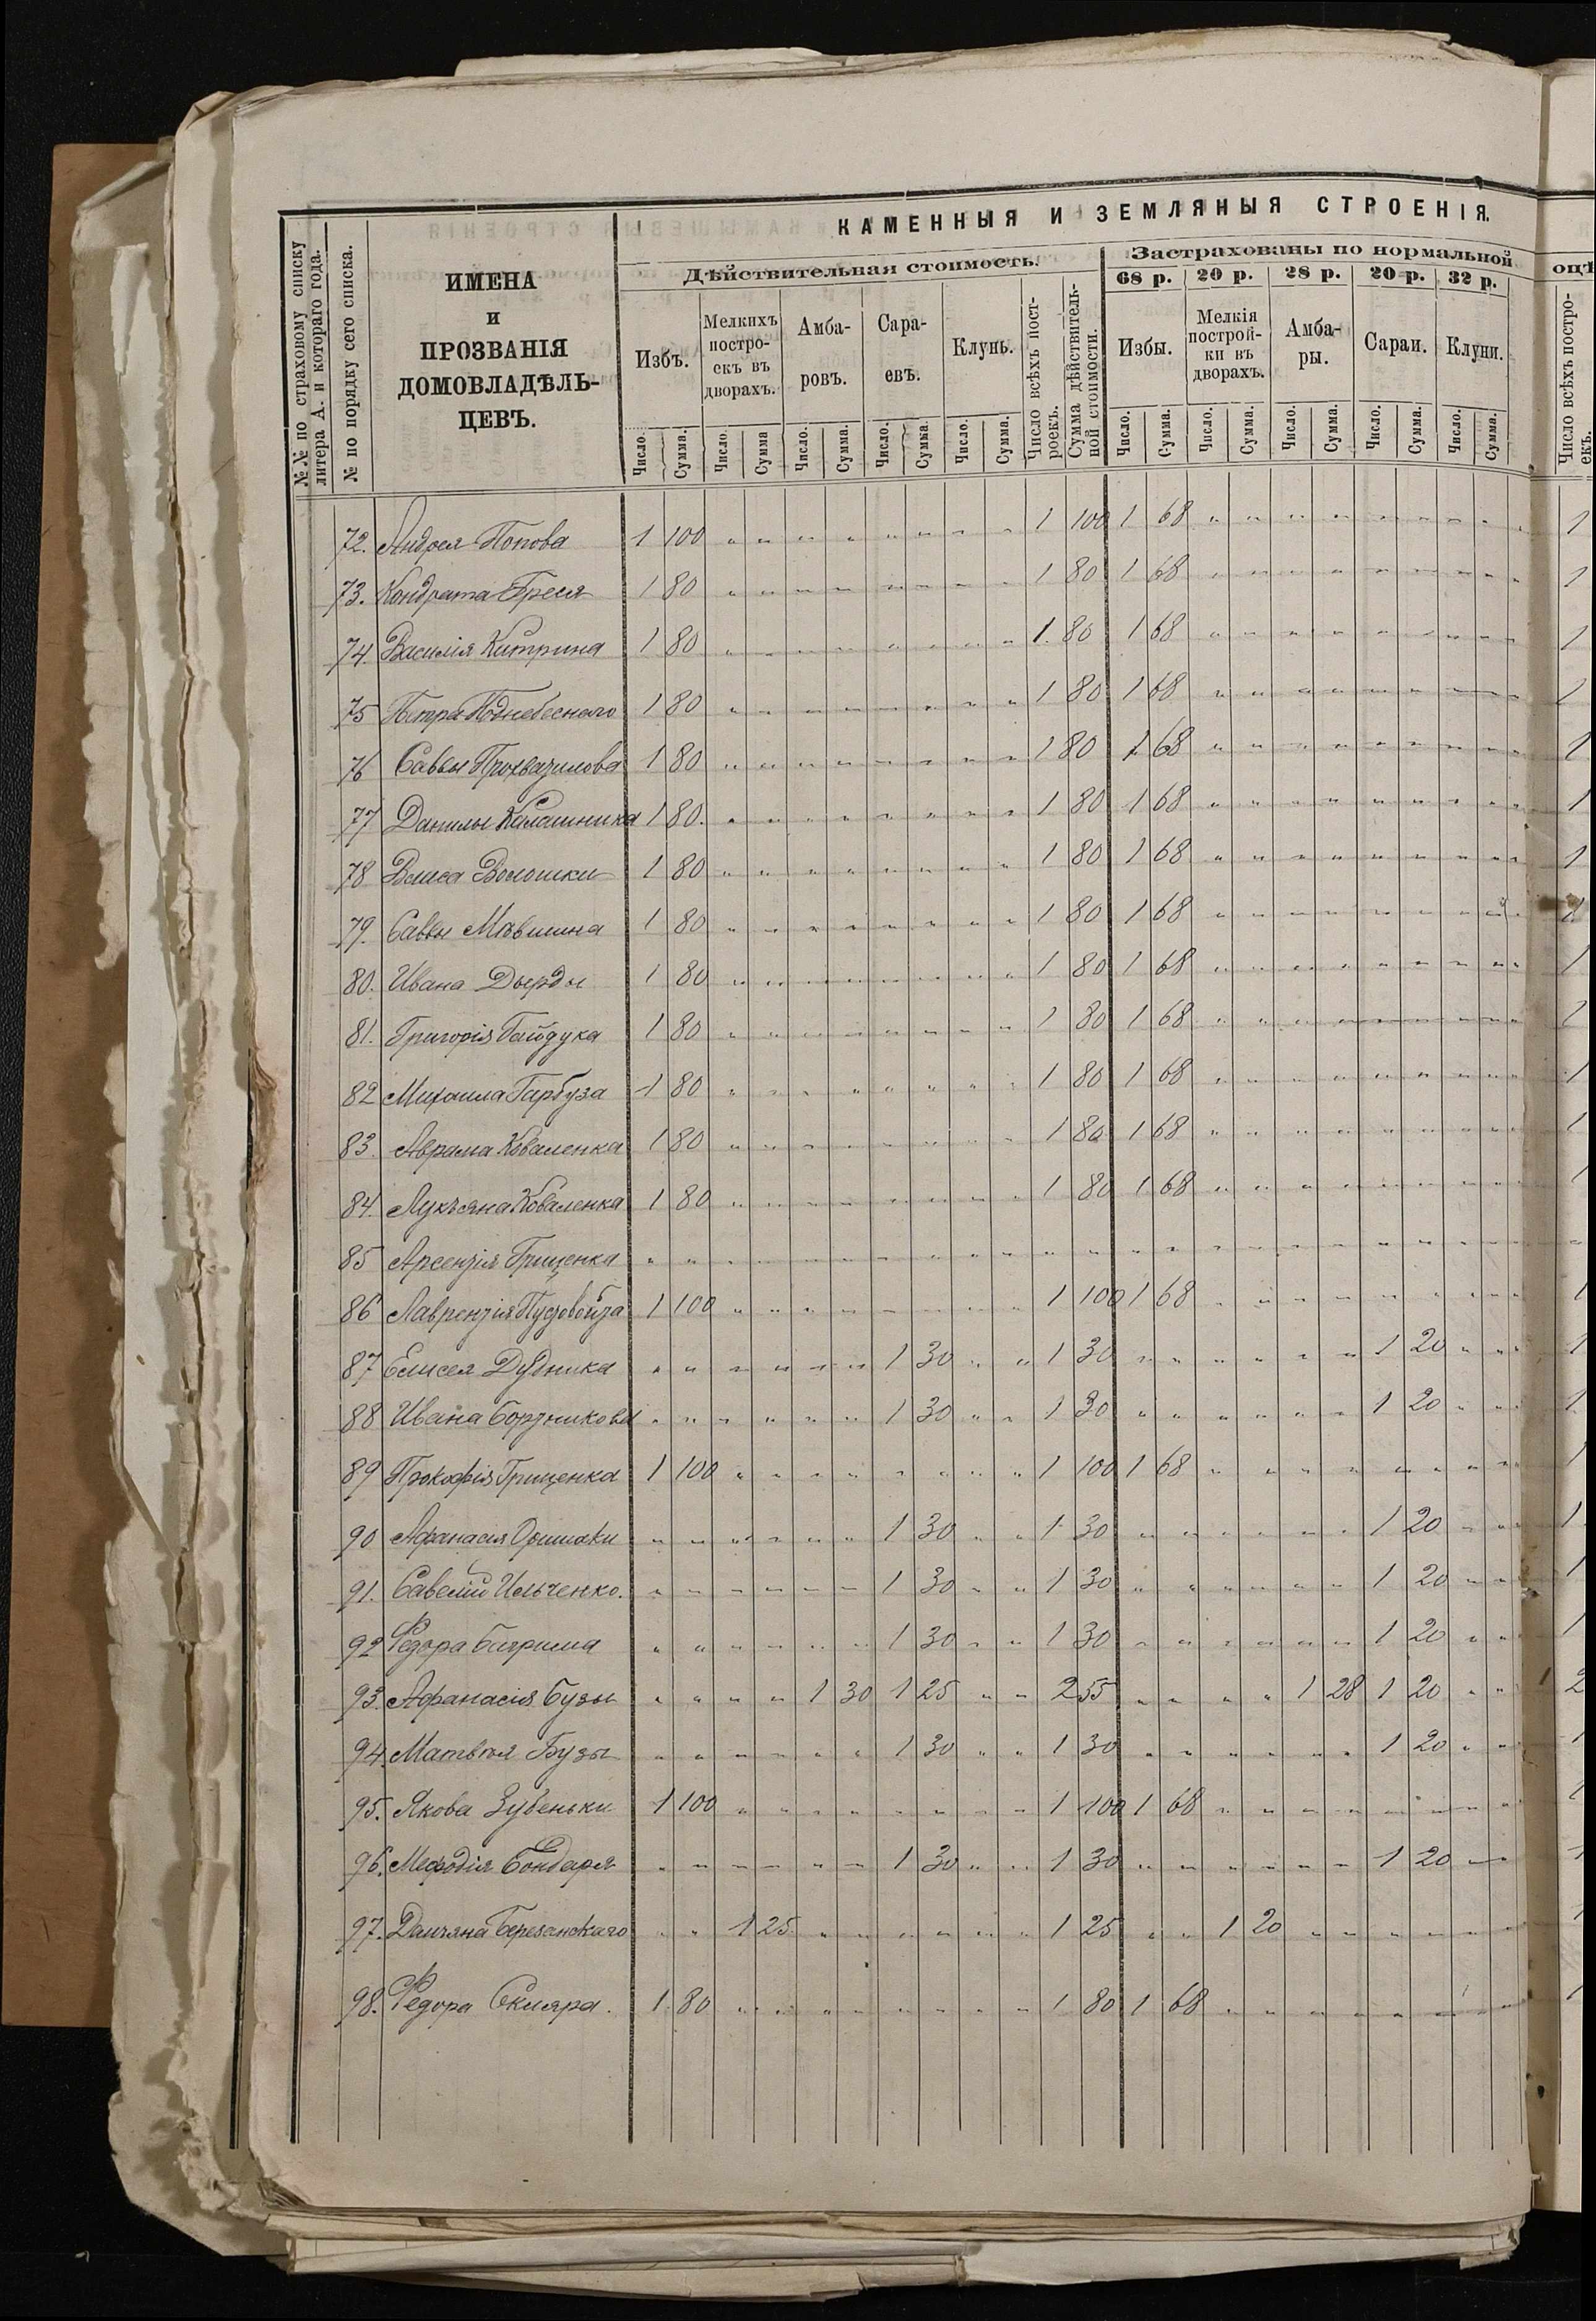 КАМЕННЫЯ И ЗЕМЛЯНЫЯ СТРОЕНІЯ.
№№ по страховому списку литера А. и котораго года.
№ по порядку сего списка.
ИМЕНА
и
ПРОЗВАНІЯ
ДОМОВЛАДѢЛЬ-
ЦЕВЪ.
Дѣйствительная стоимость.
Застрахованы по нормальной
оцѣ
68 р. 20 р. 28 р. 20 р. 32 р.
Избъ. Мелкихъ постро-екъ въ дворахъ. Амба-ровъ. Сара-евъ. Клунь. Число всѣхъ пост-роекъ. Сумма дѣйствитель-ной стоимости. Избы. Мелкія построй-ки въ дворахъ. Амба-ры. Сараи. Клуни. Число всѣхъ постро-екъ.
Число. Сумма. Число. Сумма Число. Сумма. Число. Сумма. Число. Сумма. Число. Сумма. Число. Сумма. Число. Сумма. Число. Сумма. Число. Сумма.
72. Андрея Попова 1 100 " " " " " " " " 1 100 1 68 " " " " " " " " 1
73. Кондрата Греся 1 80 " " " " " " " " 1 80 1 68 " " " " " " " " 1
74. Василія Китрина 1 80 " " " " " " " " 1 80 1 68 " " " " " " " " 1
75 Петра Поднебеснаго 1 80 " " " " " " " " 1 80 1 68 " " " " " " " " 1
76 Саввы Прохвазилова 1 80 " " " " " " " " 1 80 1 68 " " " " " " " " 1
77 Данилы Калашника 1 80. " " " " " " " " 1 80 1 68 " " " " " " " " 1
78 Власа Волошки 1 80 " " " " " " " " 1 80 1 68 " " " " " " " " 1
79. Саввы 1 80 " " " " " " " " 1 80 1 68 " " " " " " " " 1
80. Ивана Дырды 1 80 " " " " " " " " 1 80 1 68 " " " " " " " " 1
81. Григорія Гайдука 1 80 " " " " " " " " 1 80 1 68 " " " " " " " " 1
82 Михаила Гарбуза 1 80 " " " " " " " " 1 80 1 68 " " " " " " " " 1
83. Аврама Коваленка 1 80 " " " " " " " " 1 80 1 68 " " " " " " " " 1
84. Лукьяна Коваленка 1 80 " " " " " " " " 1 80 1 68 " " " " " " " " 1
85 Арсентія Гриценка " " " " " " " " " " " " " " " " " " " " " "
86 Лаврентія Пустовойта 1 100 " " " " " " " " 1 100 1 68 " " " " " " " " 1
87 Елисея Дубника " " " " " " 1 30 " " 1 30 " " " " " " 1 20 " " 1
88 Ивана Бортникова " " " " " " 1 30 " " 1 30 " " " " " " 1 20 " " 1
89 Прокофія Гриценка 1 100 " " " " " " " " 1 100 1 68 " " " " " " " " 1
90 Афанасія " " " " " " 1 30 " " 1 30 " " " " " " 1 20 " " 1
91. Савелій Ильченко. " " " " " " 1 30 " " 1 30 " " " " " " 1 20 " " 1
92 Федора " " " " " " 1 30 " " 1 30 " " " " " " 1 20 " " 1
93. Афанасія Бузы " " " " 1 30 1 25 " " 2 55 " " " " 1 28 1 20 " " 2
94. Матвѣя Бузы " " " " " " 1 30 " " 1 30 " " " " " " 1 20 " " 1
95. Якова Зубеньки 1 100 " " " " " " " " 1 100 1 68 " " " " " " " " 1
96. Мефодія Бондаря " " " " " " 1 30 " " 1 30 " " " " " " 1 20 " " 1
97. Дамяна Березанскаго " " 1 25 " " " " " " 1 25 " " 1 20 " " " " " " 1
98. Федора Скляра. 1 80 " " " " " " " " 1 80 1 68 " " " " " " " " 1